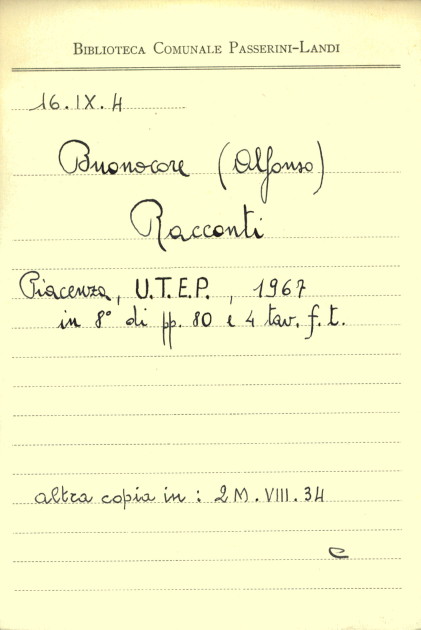 BIBLIOTECA COMUNALE PASSERINI-LANDI
16.IX.4
Buonocore (Alfonso)
Racconti
Piacenza, U.T.E.P., 1967
in 8° di pp. 80 e 4 tav. f. t.
altra copia in: 2M.VIII.34
C